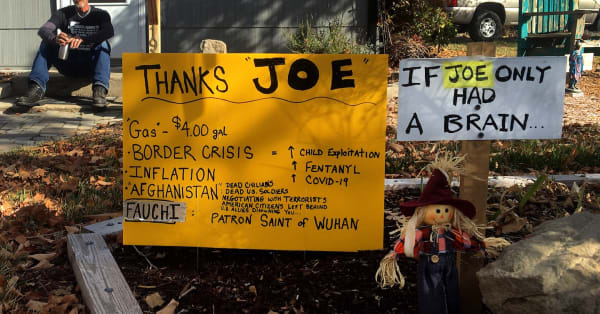 THANKS "JOE"
"Gas" - $4.00 gal
· BORDER CRISIS = ↑ CHILD EXPLOITATION
· INFLATION ↑ FENTANYL
↑ COVID-19
· "AFGHANISTAN" DEAD CIVILIANS
DEAD U.S. SOLDIERS
NEGOTIATING WITH TERRORISTS
AMERICAN CITIZENS LEFT BEHIND
U.S. ALLIES DISOWNING YOU...
FAUCHI : PATRON SAINT OF WUHAN
IF JOE ONLY
HAD
A BRAIN...